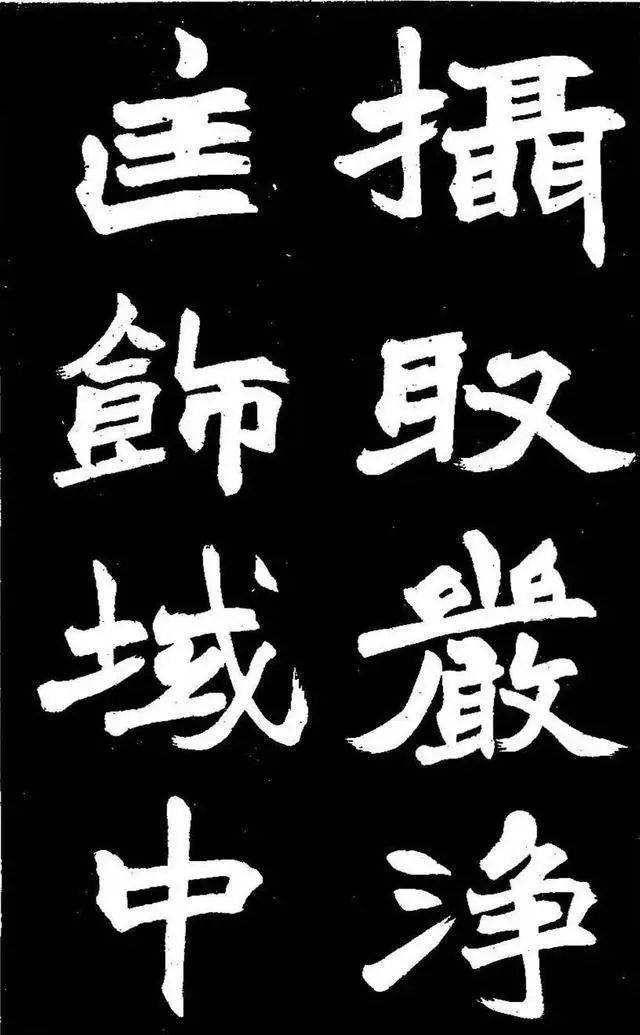 攝取嚴淨
匡飾域中